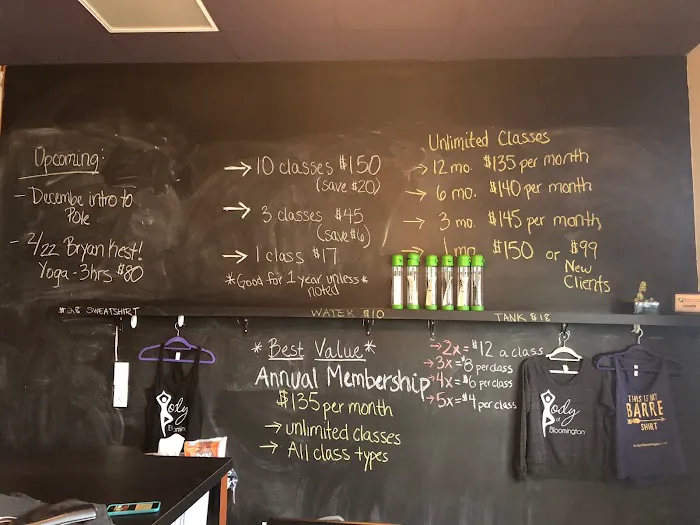 Upcoming:
- Decembe intro to
Pole
- 2/22 Bryan Kest!
Yoga - 3hrs $80
→ 10 classes $150
(save $20)
→ 3 classes $45
(save $6)
→ 1 class $17
*Good for 1 year unless*
noted
Unlimited Classes
→ 12 mo. $135 per month
→ 6 mo. $140 per month
→ 3 mo. $145 per month
→ 1 mo. $150 or $99
New
Clients
$28 SWEATSHIRT
WATER $10
TANK $18
*Best Value*
Annual Membership
$135 per month
→ unlimited classes
→ All class types
→2x = $12 a class
→3x = $8 per class
→4x = $6 per class
→5x = $4 per class
Body
Bloomington
Body
Bloomington
THIS IS MY
BARRE
SHIRT